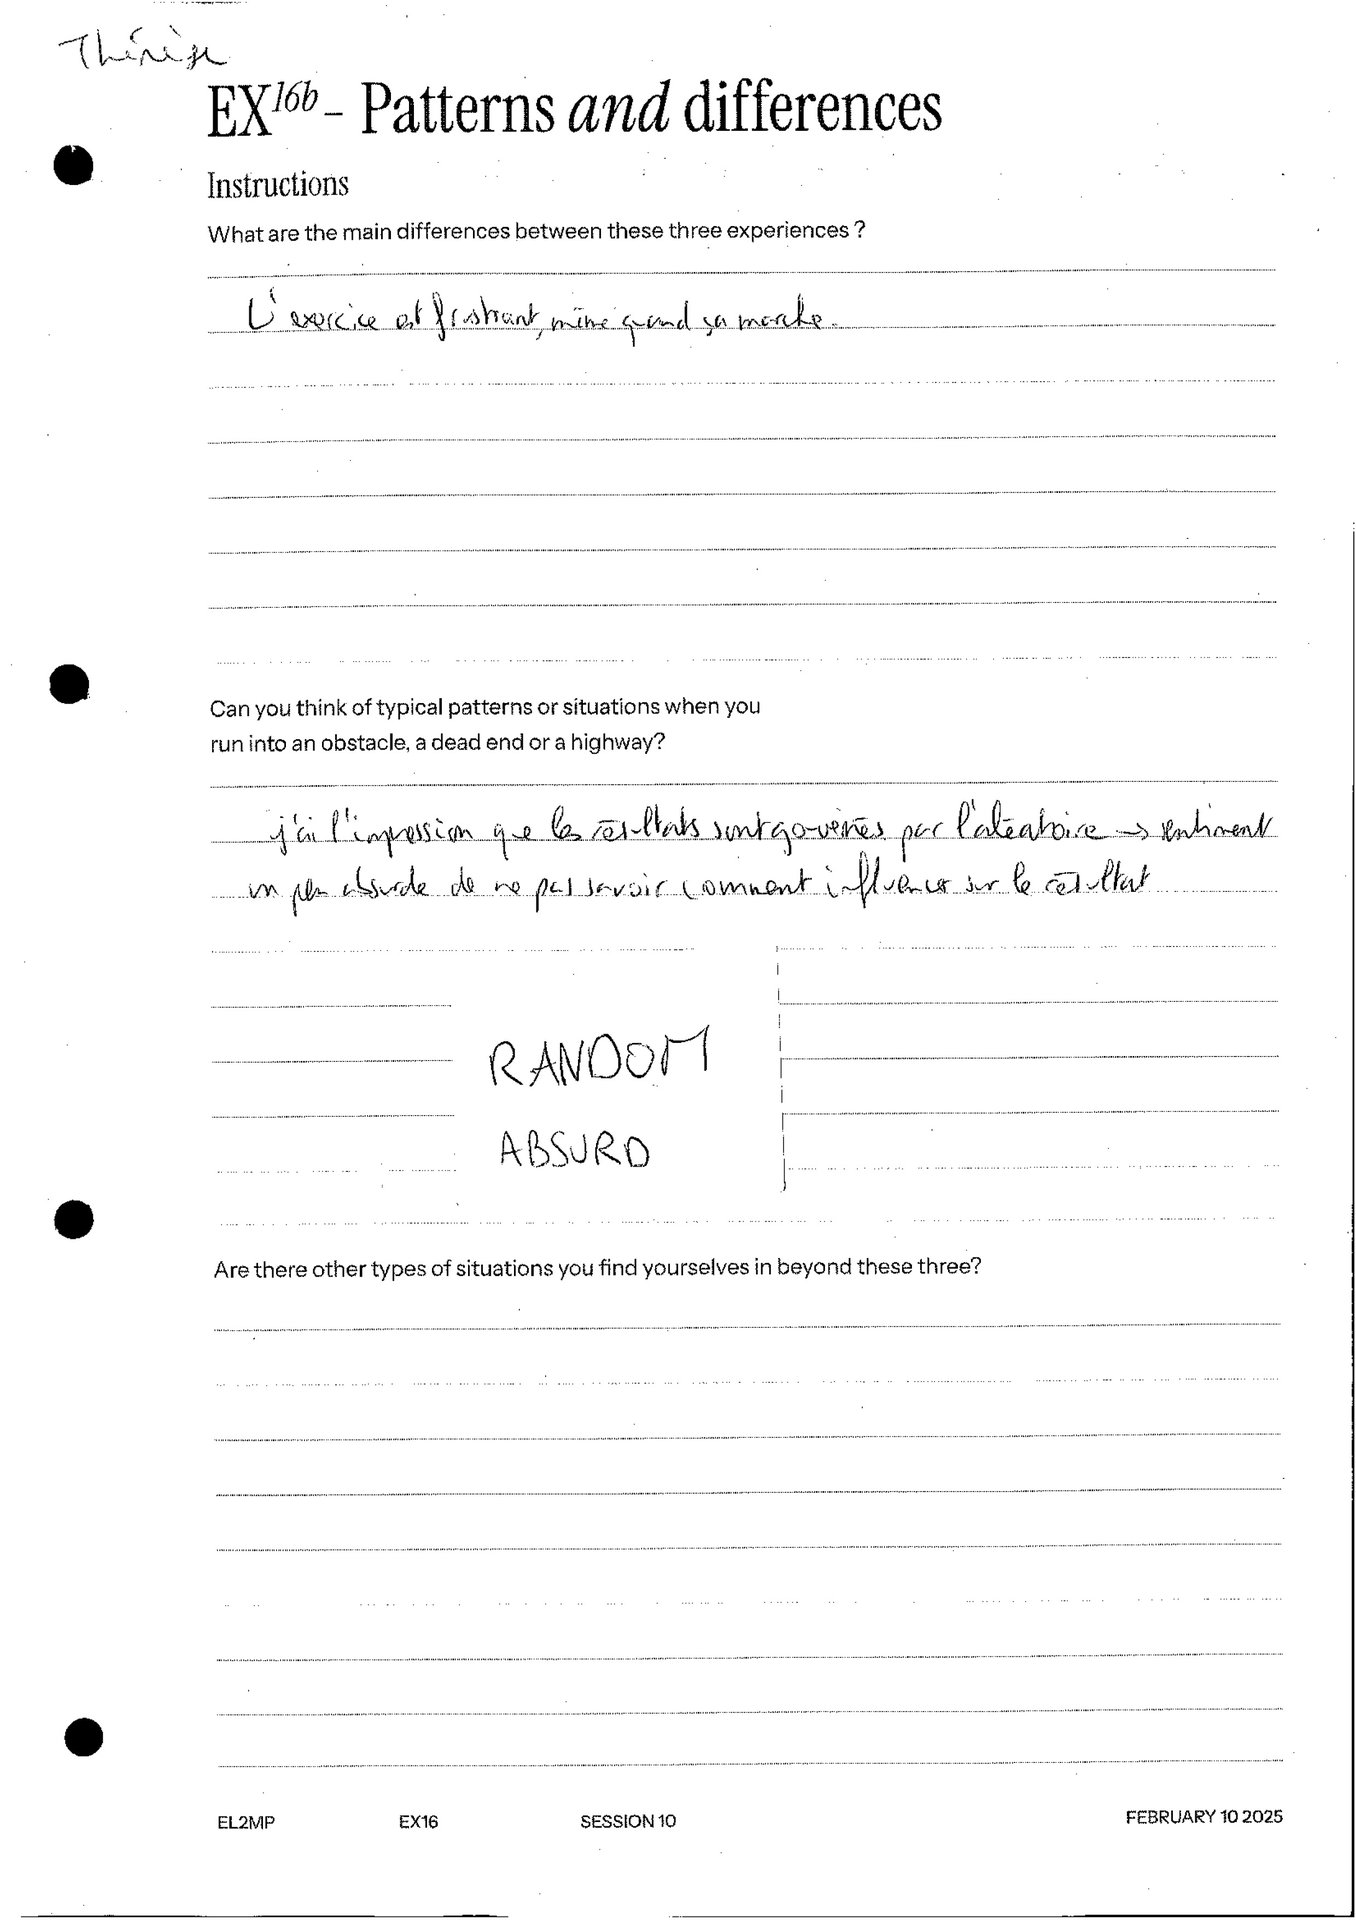 Thérèse
EX16b - Patterns and differences
Instructions
What are the main differences between these three experiences ?
L'exercice est frustrant, même quand ça marche.
Can you think of typical patterns or situations when you
run into an obstacle, a dead end or a highway?
j'ai l'impression que les résultats sont gouvernés par l'aléatoire → sentiment
un peu absurde de ne pas savoir comment influencer sur le résultat
RANDOM
ABSURD
Are there other types of situations you find yourselves in beyond these three?
EL2MP EX16 SESSION 10 FEBRUARY 10 2025